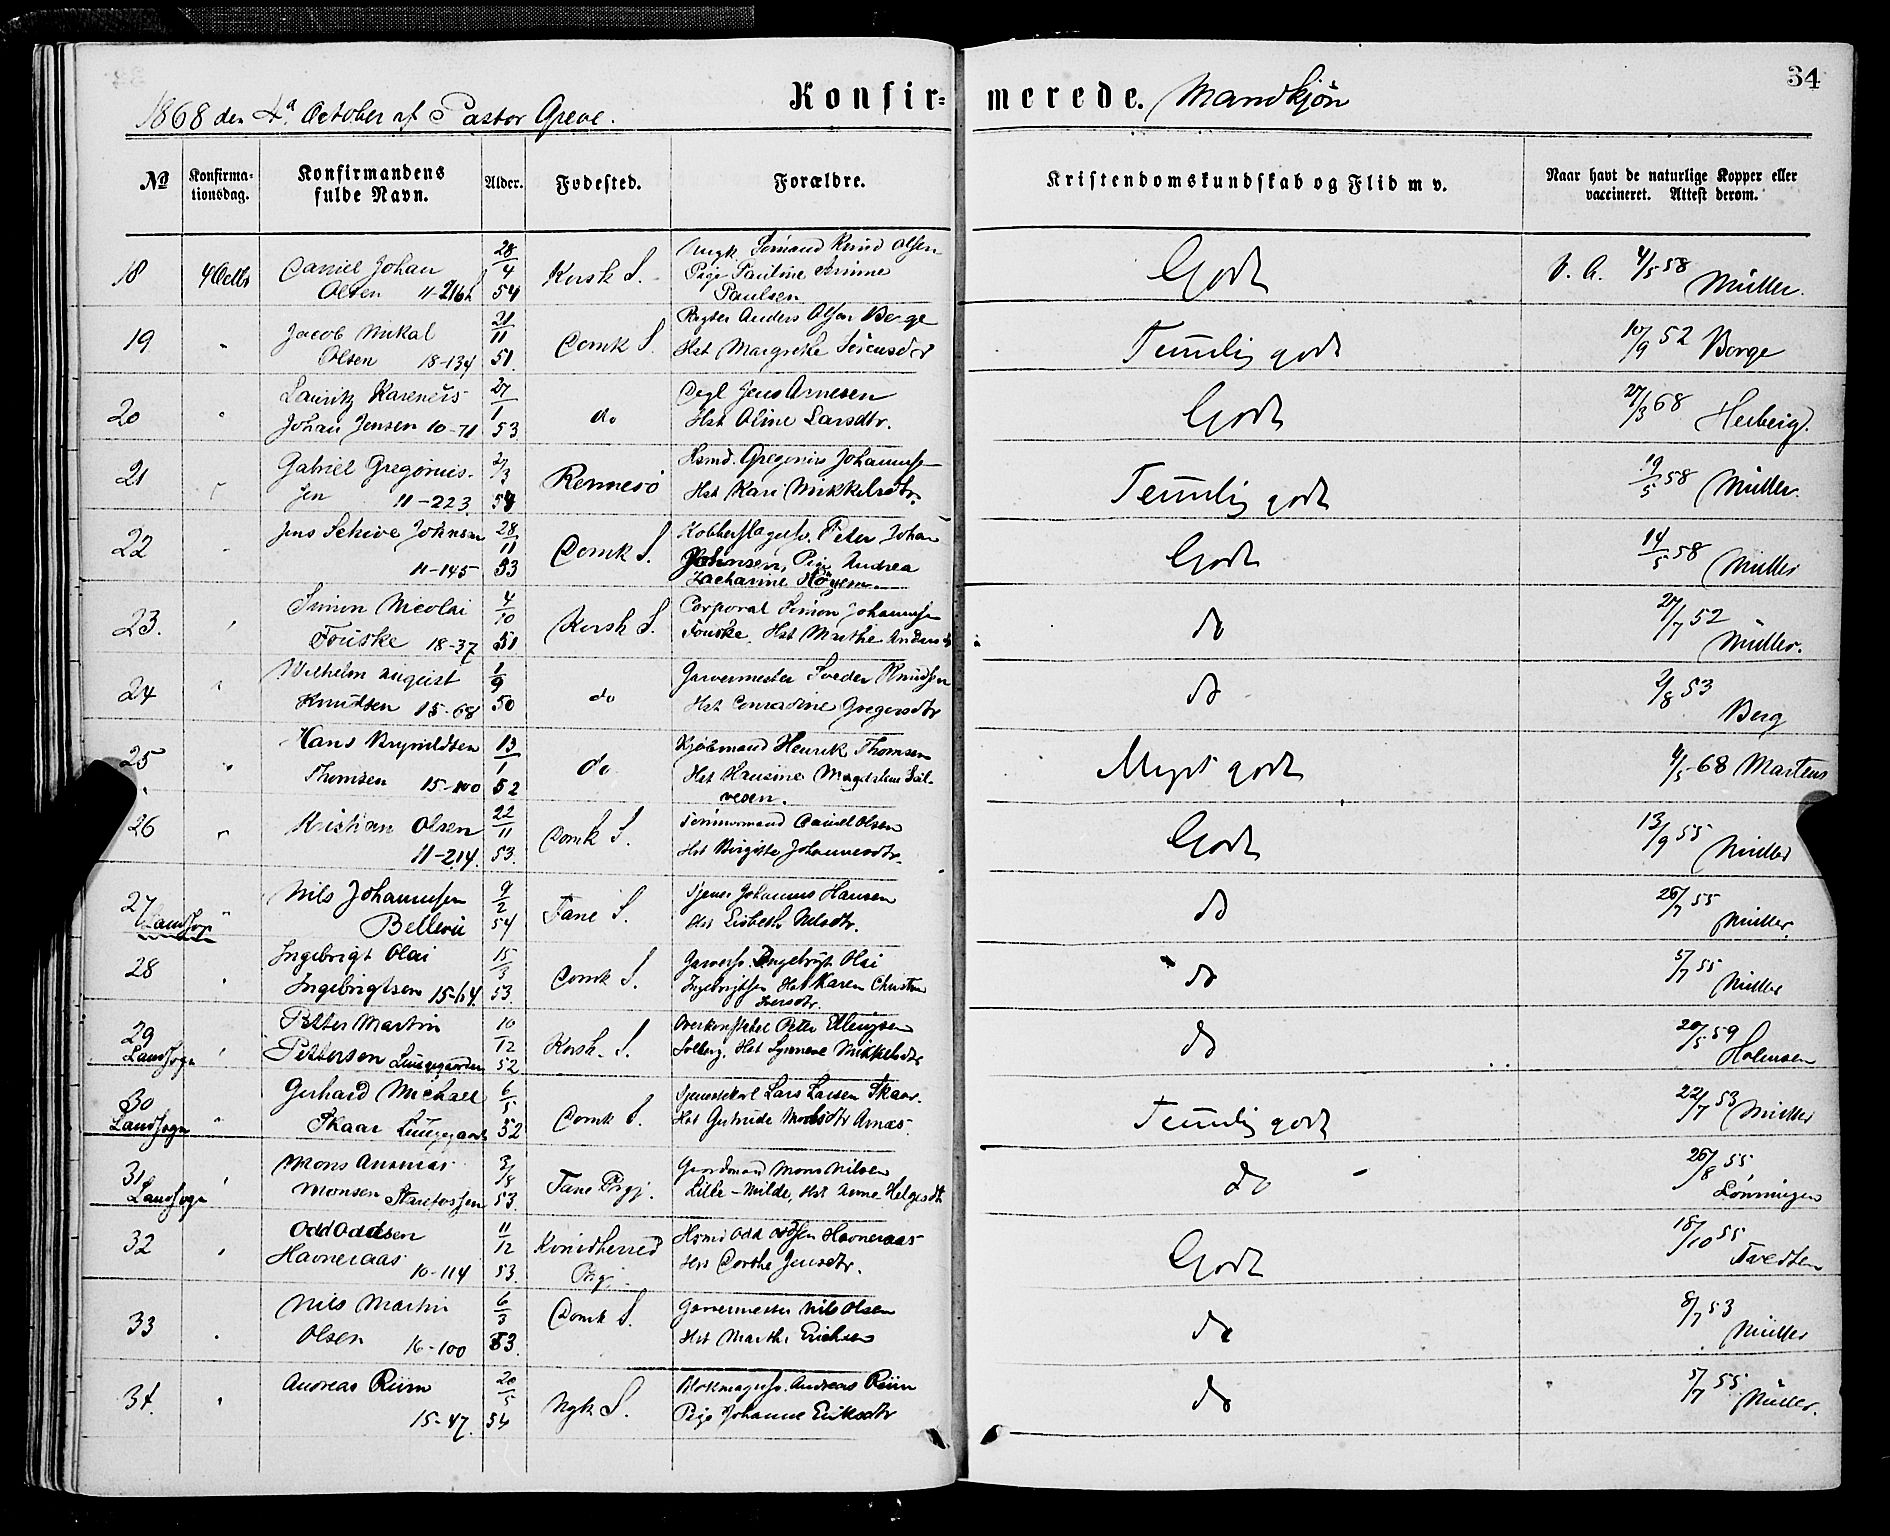 34
Konfir= merede. Mandkjøn
1868 den 4de October af Pastor Greve.
No
Konfirma-
tionsdag.
Konfirmandens
fulde Navn.
Alder.
Fødested.
Forældre.
Kristendomskundskab og Flid m v.
Naar havt de naturlige Kopper eller
vaccineret. Attest derom.
18 4 Octbr Daniel Johan 28/4 Korsk S. Ungk Knud Olsen Godt 4/5 58 Müller.
Olsen 54 Pige Pauline
Paulsen
19 " Jacob Mikal 21/11 Domk S. Anders Olsen Borge Temmelig godt 10/9 52 Borge
Olsen 18-134 51. Hst Margrethe
20 " Lauritz 27/1 do Jens Arnesen Godt 27/3 68
Johan Jensen 10-71 53 Hst Oline Larsdtr.
21 " Gabriel Gregorius- 27/3 Rennesö Hsmd. Gregorius Johannesen Temmelig godt 19/5 58 Müller.
sen 11-223. 54 Hst Kari Mikkelsdtr.
22 " Jens Schive Johnsen 28/11 Domk S. Peter Johan Godt 14/5 58 Müller
11-145 53 Johnsen, Pige Andrea
Zacharine
23. " Simon Nicolai 4/10 Korsk S. Corporal Simon Johannesen do 27/7 52
Fouske 18-37 51 Fouske. Hst Marthe Müller.
24 " Wilhelm August 1/9 do Garvermester Knudsen do 2/8 53
Knudsen 15-68 50 Hst Conradine Gregersdtr Berg
25 " Hans Brynildsen 13/1 do Kjöbmand Henrik Thomsen Meget godt 4/5 68 Martens
Thomsen 15-100 52 Hst Hansine Magdalene Sal-
vesen.
26 " Kristian Olsen 22/11 Domk S. Daniel Olsen Godt 13/9 55 Müller
11-214. 53. Hst Birgitte Johannesdtr.
27 " Nils Johannesen 9/2 Fane S. Tjener Johannes Hansen do 26/7 55
Landsogn Bellevü 54 Hst Lisbeth Nilsdtr. Müller.
28 " Ingebrigt Olai 15/3 Domk S. Ingebrigt Olai do 5/7 55
Ingebrigtsen 15-64. 53. Ingebrigtsen Hst Karen Christine Müller
Iversdtr.
29 " Petter Martin 10/12 Korsk. S. Peter Ellingsen do 20/5 59
Landsogn Pettersen Lungegaarden 52 Solberg. Hst Synneve Mikkelsdtr Holmsen
30 " Gerhard Michael 6/5 Domk S. Tjenestekarl Lars Larsen Skaar. Temmelig godt 22/7 53 Müller
Landsogn Skaar Lungegaard 52 Hst Gertrude Monsdtr Arnæs
31 " Mons Andreas 3/8 Fane Prgj. Gaardmand Mons Nilsen do 26/8 55
Landsogn Monsen 53. Lille-Milde, Hst Anne Helgesdtr Lönningen
32 " Odd Oddsen 11/12 Kvindherred Hsmd Odd Oddsen Havneraas Godt 18/10 55
Havneraas 10-114 53. Prgj. Hst Dorthe Jensdtr. Tvedten
33 " Nils Martin 6/3 Domk S. Garvermester Nils Olsen do 8/7 53
Olsen 16-100 53. Hst Marthe Erichsen Müller
34. " Andreas Riim 20/5 Nyk S. Blokmagersv. Andreas Riim do 5/7 55
15-47. 54 Pige Johanne Eriksdtr Müller.